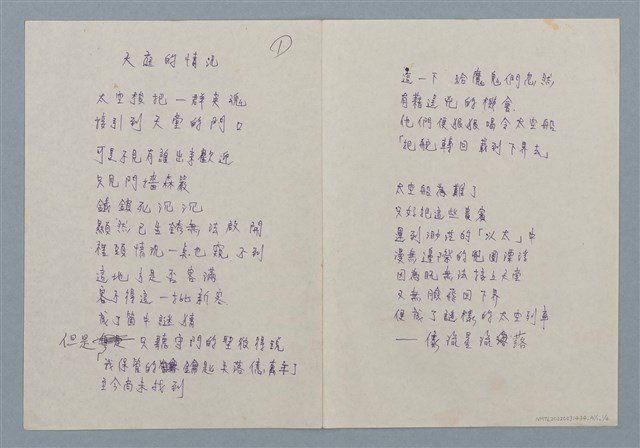 天庭的情況
①
太空梭把一群英魂
接引到天堂的門口
可是不見有誰出來歡迎
只見門牆森嚴
鐵鎖死沉沉
顯然已生銹無法啟開
裡頭情況一點也窺不到
這地方是否客滿
害手得這一批新客
成了箇中謎猜
但是只聽守門的聖彼得說
「我保管的鑰匙失落億萬年」
至今尚未找到
這一下 給魔鬼們忽然
有藉逞兇的機會
他們便狠狠喝令太空船
「把舵轉回 載到下界去」
太空船為難了
只好把這些貴賓
運到渺茫的「以太」中
漫無邊際的兜圈漂浮
因為既無法接上天堂
又無臉落回下界
便成了謎樣的太空列車
——像流星流落